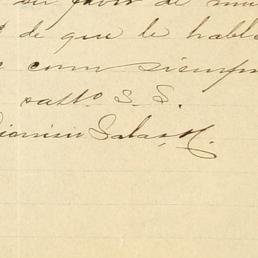 su favor de
de que le habl
como siempre
satto S. S.
Dionisio Salas M.